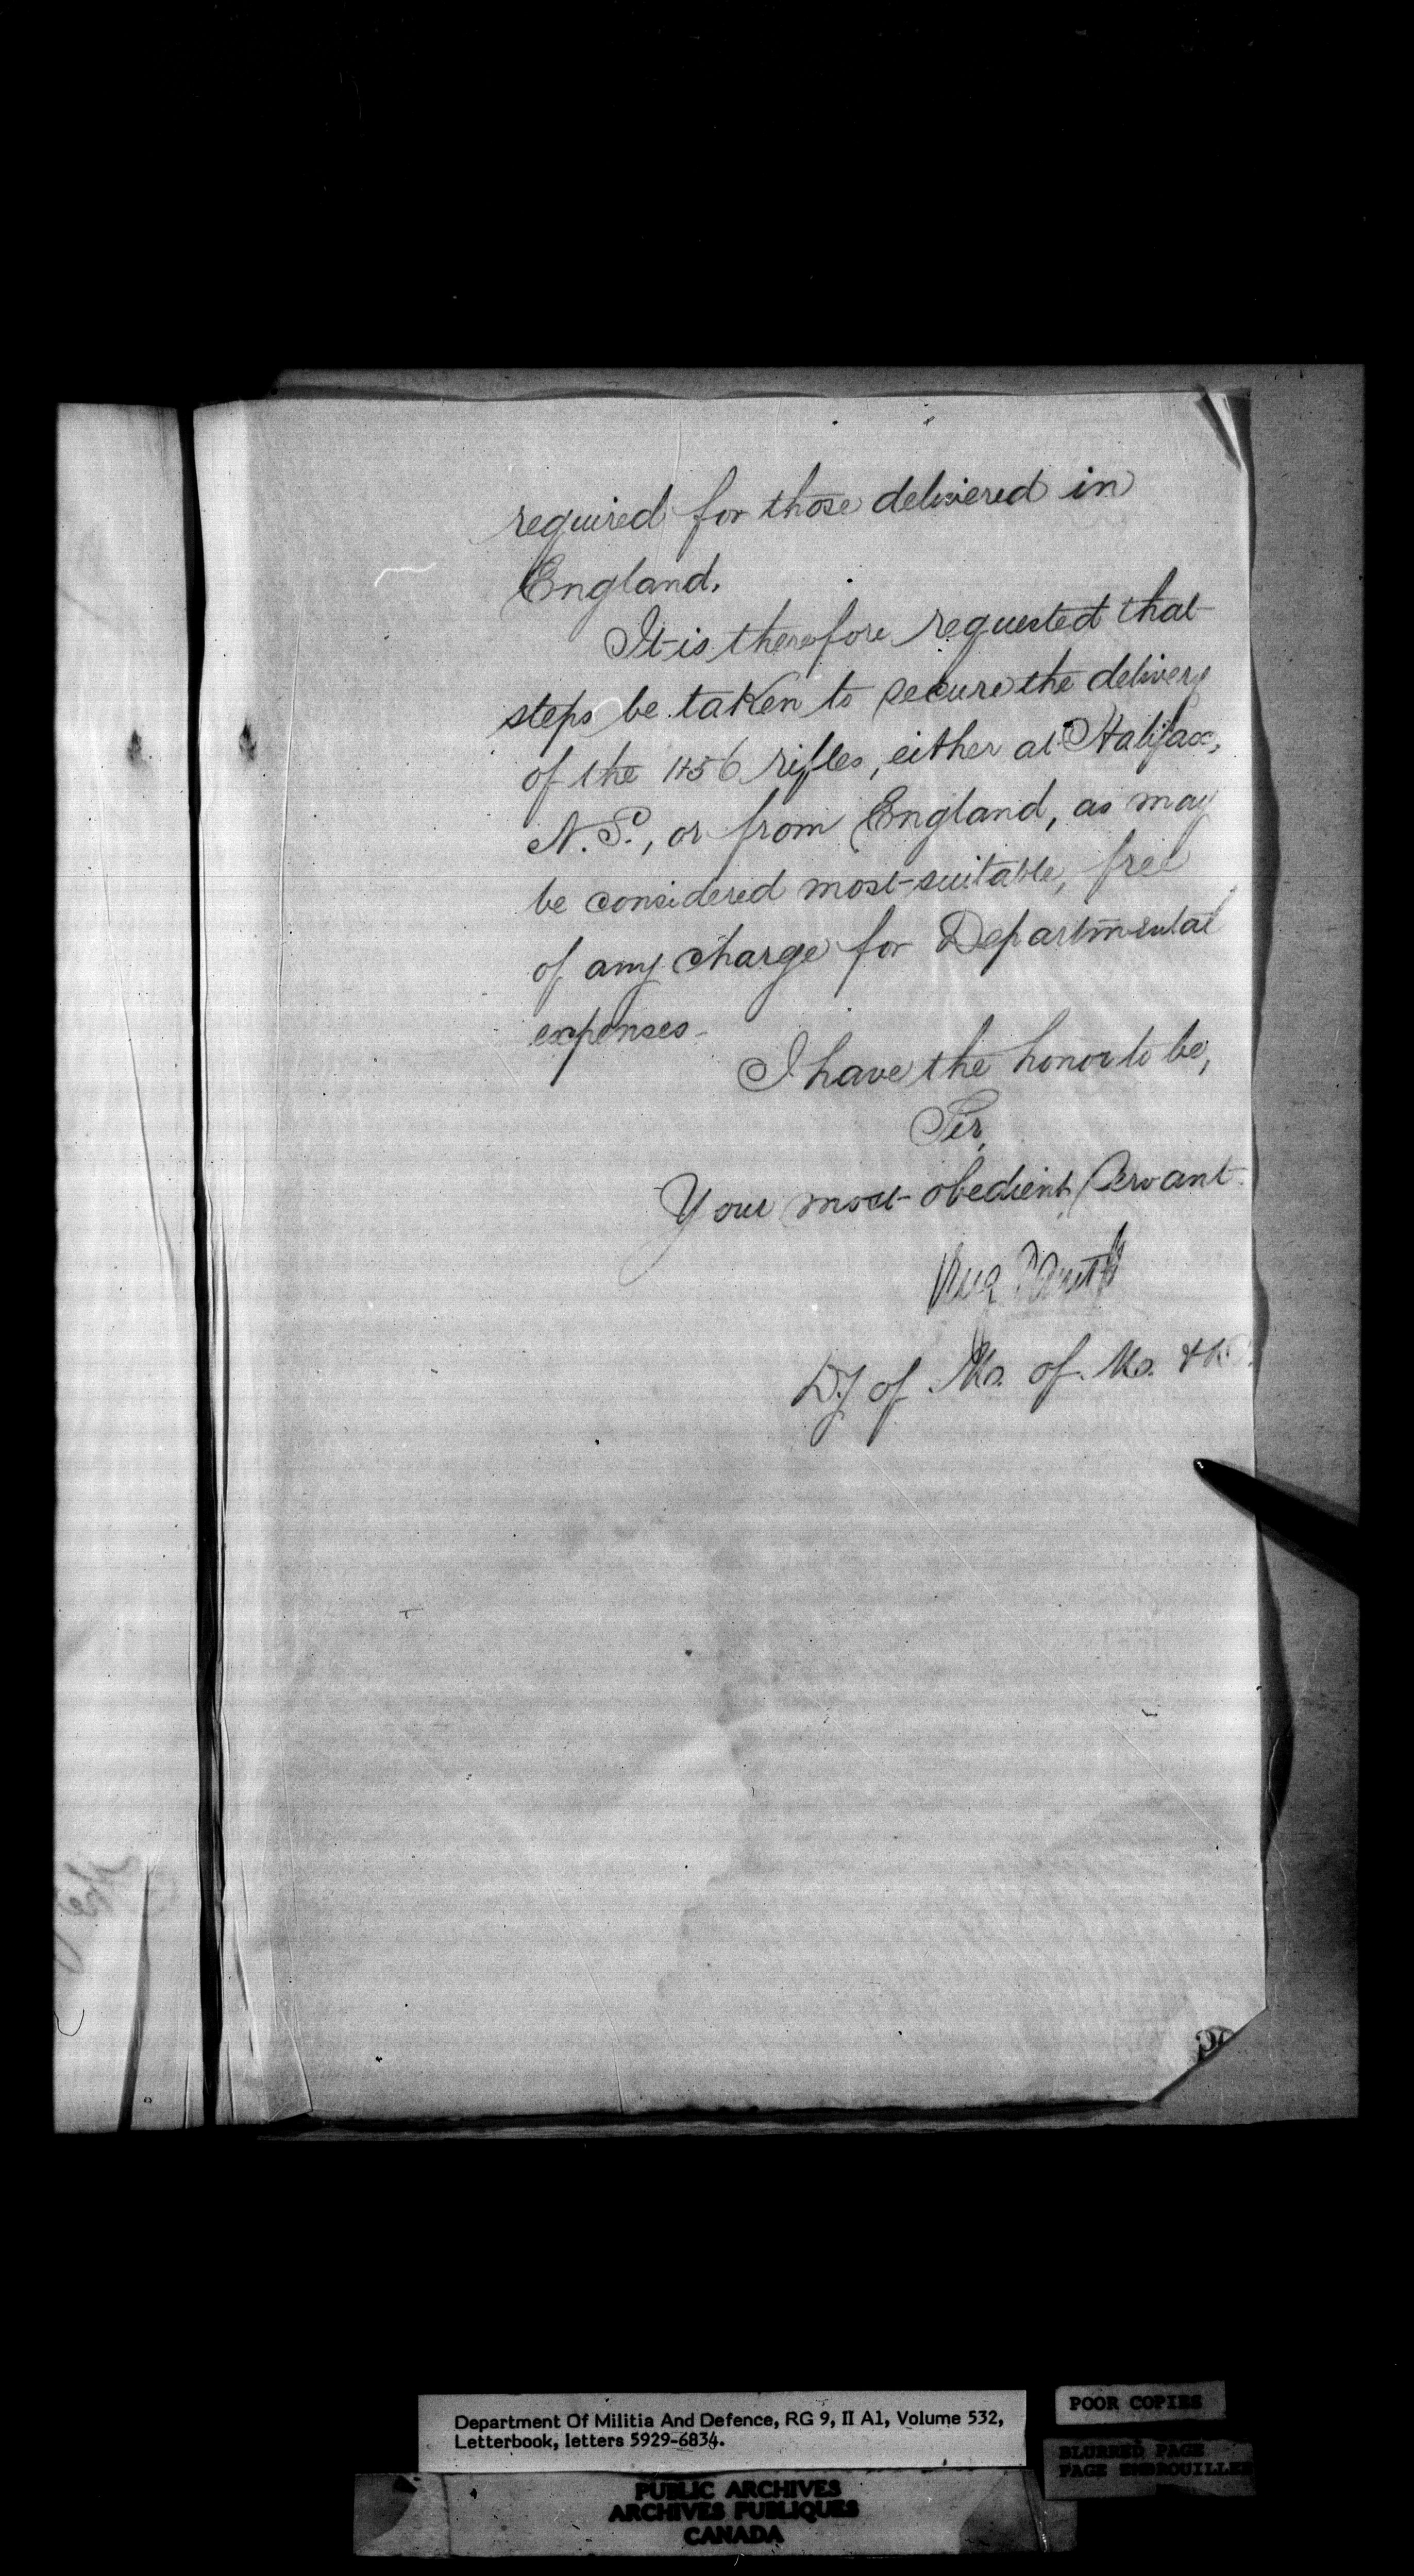 required for those delivered in
England.
It is therefore requested that
steps be taken to secure the delivery
of the 1456 rifles, either at Halifax,
N.S., or from England, as may
be considered most suitable, free
of any charge for Departmental
expenses.
I have the honor to be,
Sir,
Your most obedient Servant
D.y of M. of M. & D.
Department Of Militia And Defence, RG 9, II A1, Volume 532,
Letterbook, letters 5929-6834.
POOR COPIES
BLURRED PAGE
PAGE EMBROUILLEE
PUBLIC ARCHIVES
ARCHIVES PUBLIQUES
CANADA